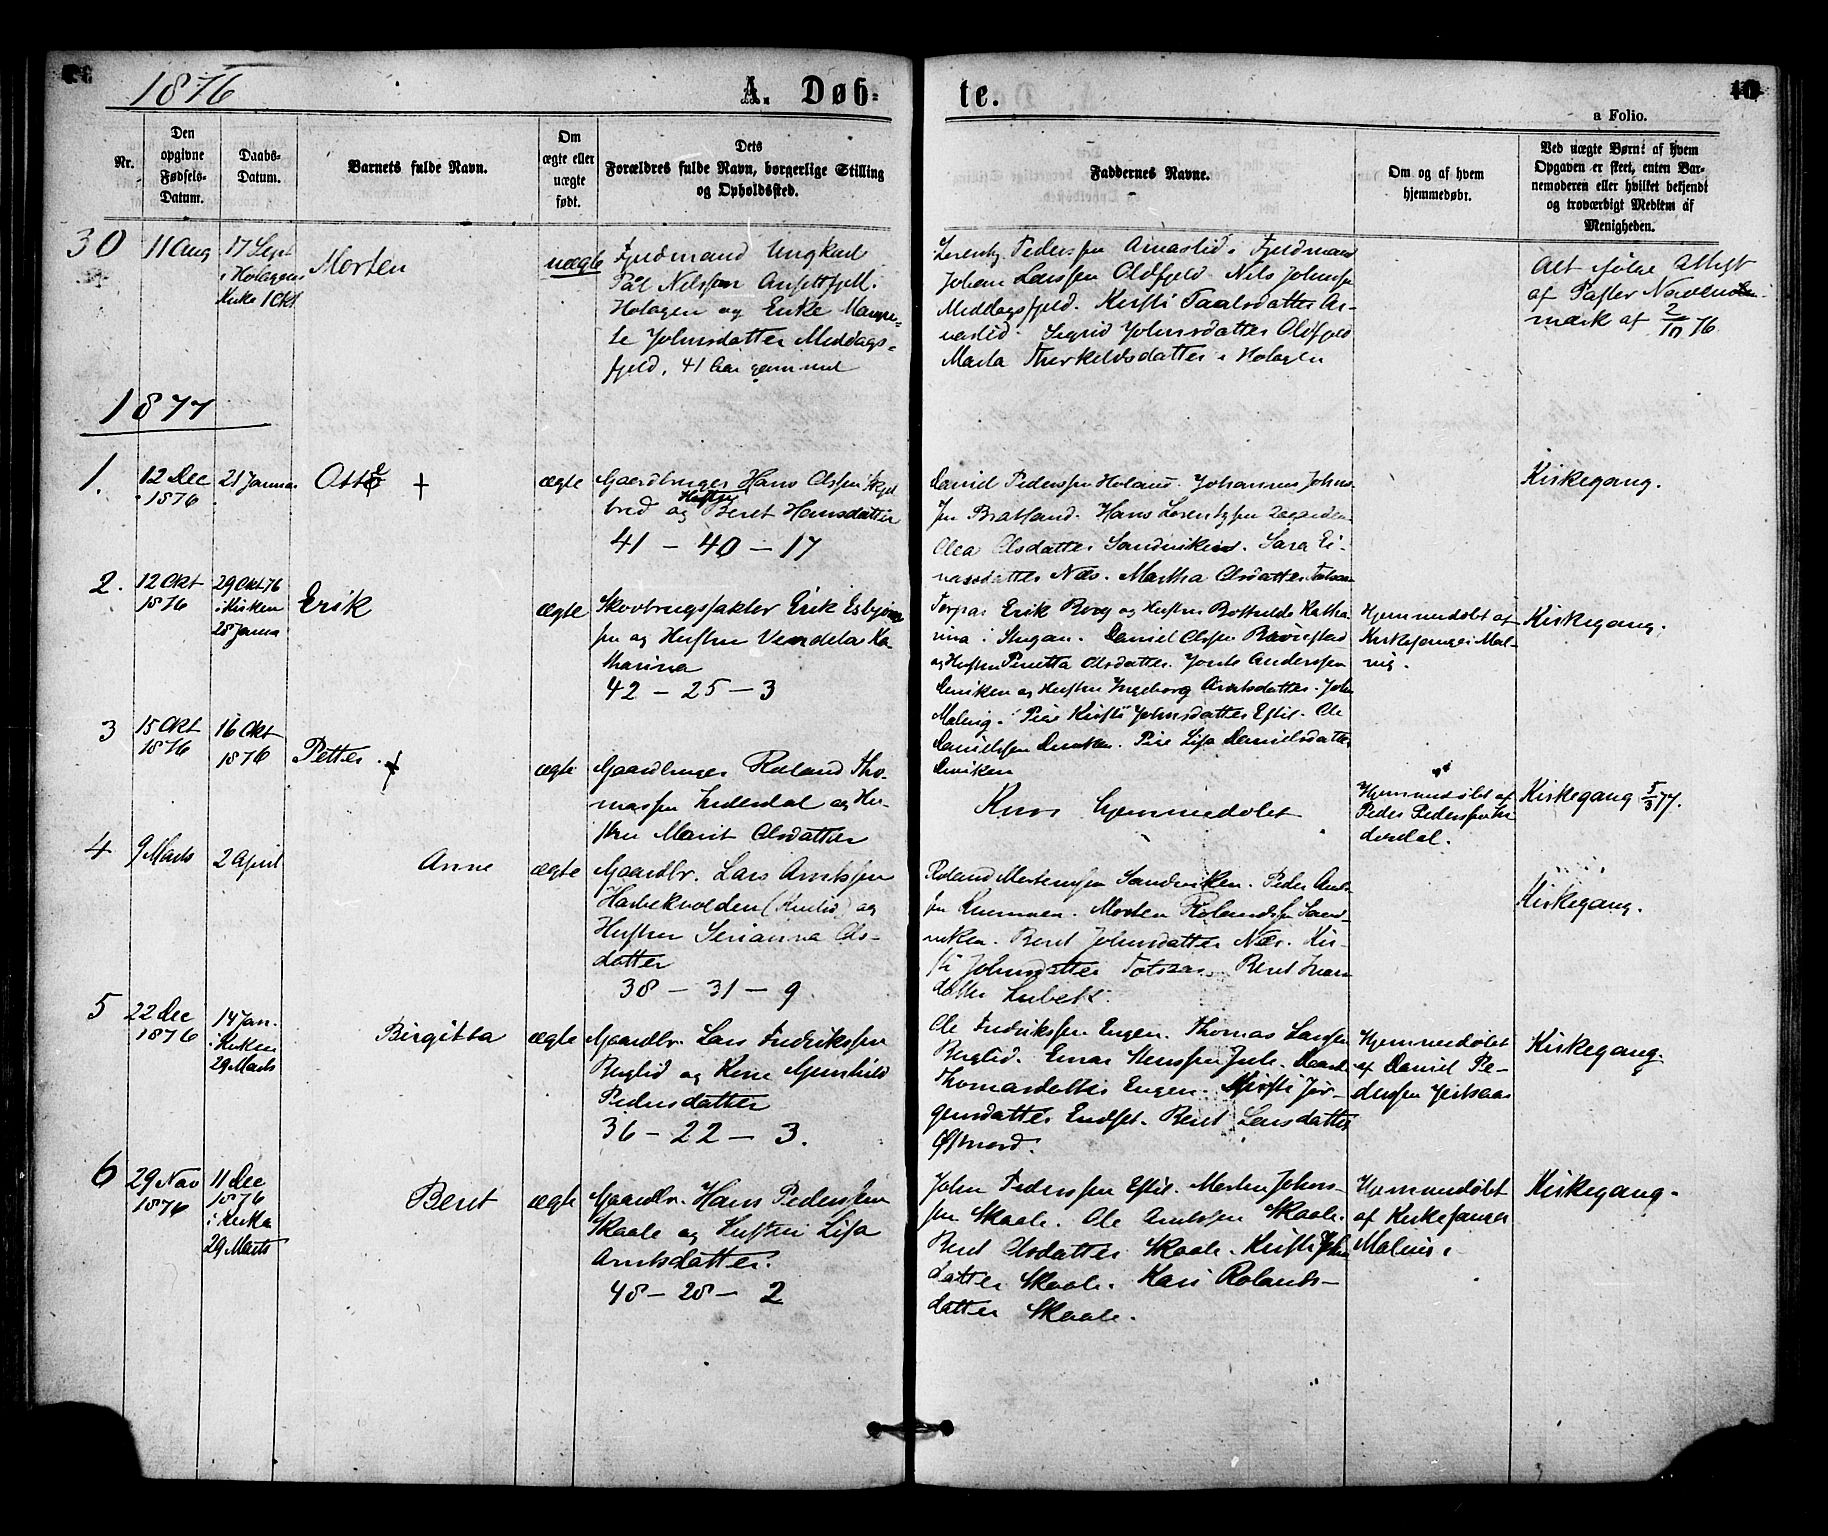 1876
A. Døb-
te.
10
a Folio.
Nr.
Den opgivne Fødsels-Datum.
Daabs-Datum.
Barnets fulde Navn.
Om ægte eller uægte født.
Dets Forældres fulde Navn, borgerlige Stilling og Opholdssted.
Faddernes Navne.
Om og af hvem hjemmedøbt.
Ved uægte Børn: af hvem Opgaven er skeet, enten Barnemoderen eller hvilket bekjendt og troværdigt Medlem af Menigheden.
30
11 Aug
17 Sept
i Holagens
Kirke 1 Okt
Morten
uægte
Fjeldmand Ungkarl
Pål Nilssen
Holagen og Enke Margre-
te Johnsdatter Middags-
fjeld, 41 Aar gammel
Lorentz Pederssen Arnaslid. Fjeldmand
Johan Larssen Oldfjeld. Nils Johnsen
Middagsfjeld. Kirsti Paalsdatter Ar-
naslid. Sigrid Johnsdatter Oldfjeld
Marta Therkeldsdatter i Holagen
Alt ifølge Attest
af Pastor
mærk af 2/10 76.
1877
1.
12 Dec
1876
21 Januar
Otte +
ægte
Gaardbruger Hans Olssen
bred og Hustru Beret Hansdatter
41 - 40 - 17
Daniel Pederssen Holand. Johannes Johns-
sen Bratland. Hans Lorentzsen
Olea Olsdatter Sandviken. Sara Ei-
narsdatter Næs. Martha Olsdatter Totsaas
Kirkegang.
2.
12 Okt
1876
29 Okt 76
i Kirken
28 Janua
Erik
ægte
Skovbrugsfaktor Erik Esbjørn-
sen og Hustru Vendela Ka
tharina
42 - 25 - 3
Torpar Erik Borg og Hustru Bothilde Katha
rina i Stugan. Daniel Olssen
og Hustru Peretta Olsdatter. Jonts Anderssen
Deviken og Hustru Ingeborg Arntsdatter. John
Malvig. Pige Kirsti Johnsdatter Estil. Ole
Danielssen Deviken. Pige Lisa Danielsdatter
Deviken
Hjemmedøbt af
Kirkesanger Mal-
vig.
Kirkegang.
3
15 Okt
1876
16 Okt
1876
Petter. +
ægte
Gaardbruger Roland Tho-
massen Inderdal og Hu-
stru Marit Olsdatter
Kun hjemmedøbt
Hjemmedøbt af
Peder Pederssen In
derdal.
Kirkegang 5/3 77.
4
9 Marts
2 April
Anne
ægte
Gaardbr. Lars Arntssen
Harbekvolden (Kvelid) og
Hustru Serianna Ols-
datter
38 - 31 - 9
Roland Mortenssen Sandviken. Peder Arnts-
sen Kvernmoen. Morten Rolandssen Sand-
viken. Beret Johnsdatter Næs. Kir-
sti Johnsdatter Totsaas. Beret Ivars
datter Lubek.
Kirkegang.
5
22 Dec
1876
14 Jan.
i Kirken
29 Marts
Birgitta
ægte
Gaardbr. Lars Fredrikssen
Berglid og Kone Gunhild
Pedersdatter
36 - 22 - 3.
Ole Fredrikssen Engen. Thomas Larssen
Berglid. Einar Stenssen Jule.
Thomasdatter Engen. Kirsti Jør-
gensdatter Endset. Beret Larsdatter
Østnord.
Hjemmedøbt
af Daniel Pe-
derssen Jertsaas
Kirkegang.
6
29 Nov
1876
11 Dec
1876
i Kirka
29 Marts
Beret
ægte
Gaardbr. Hans Pederssen
Skaale og Hustru Lisa
Arntsdatter.
48 - 28 - 2
John Pederssen Estil. Morten Johns-
sen Skaale. Ole Arntssen Skaale.
Beret Olsdatter Skaale. Kirsti John
datter Skaale. Kari Rolands-
datter Skaale.
Hjemmedøbt
af Kirkesanger
Malvig.
Kirkegang.